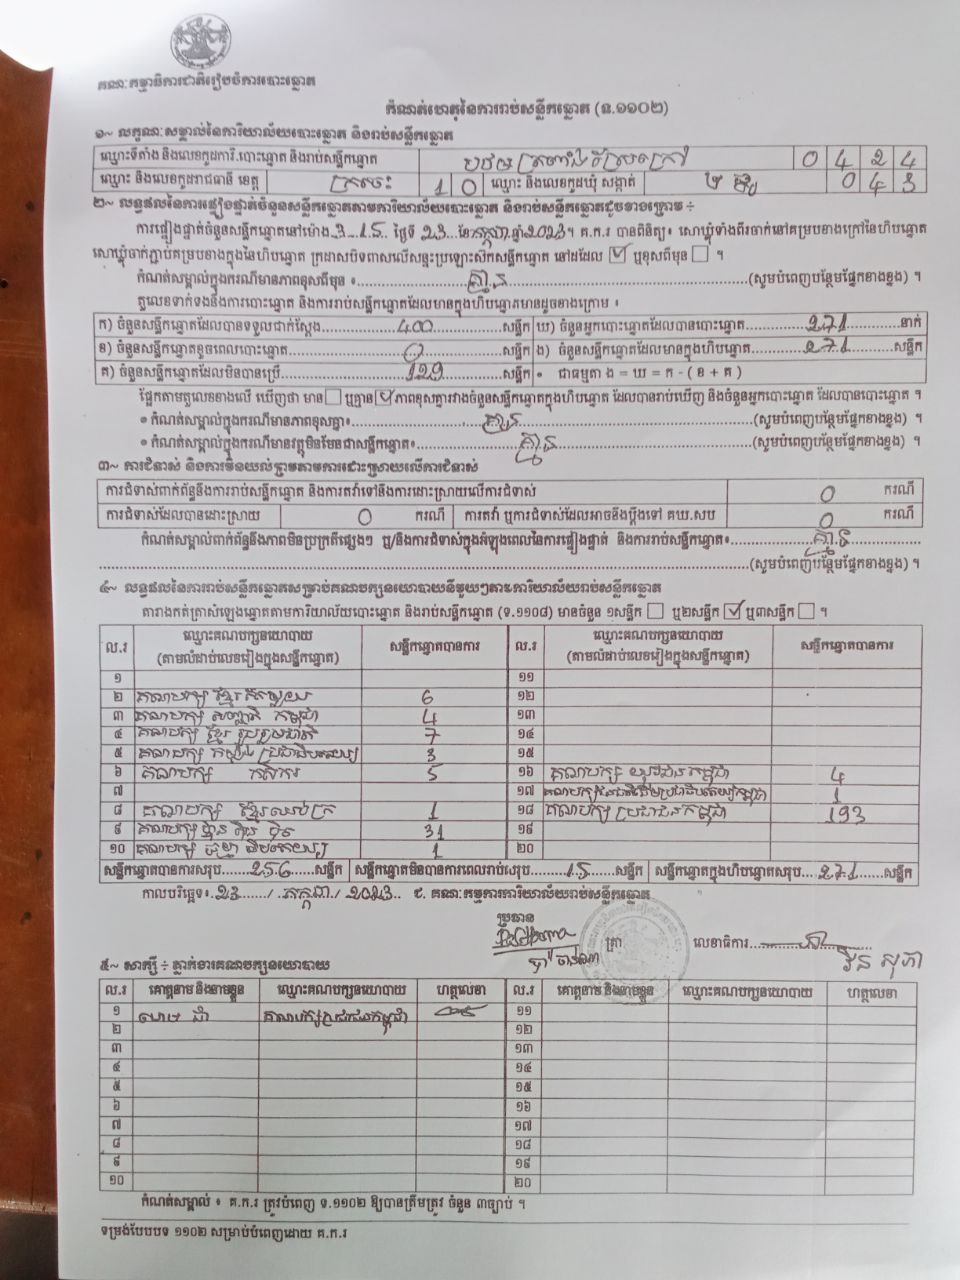 គណៈកម្មាធិការជាតិរៀបចំការបោះឆ្នោត
កំណត់ហេតុនៃការរាប់សន្លឹកឆ្នោត (ទ.១១០២)
១~ លក្ខណៈសម្គាល់នៃការិយាល័យបោះឆ្នោត និងរាប់សន្លឹកឆ្នោត
ឈ្មោះទីតាំង និងលេខកូដការិ.បោះឆ្នោត និងរាប់សន្លឹកឆ្នោត 0 4 2 4
ឈ្មោះ និងលេខកូដរាជធានី ខេត្ត ក្រចេះ 1 0 ឈ្មោះ និងលេខកូដឃុំ សង្កាត់ 0 4 3
២~ លទ្ធផលនៃការផ្ទៀងផ្ទាត់ចំនួនសន្លឹកឆ្នោតតាមការិយាល័យបោះឆ្នោត និងរាប់សន្លឹកឆ្នោតដូចខាងក្រោម ÷
ការផ្ទៀងផ្ទាត់ចំនួនសន្លឹកឆ្នោតនៅម៉ោង 3 15 ថ្ងៃទី 23 ខែ កក្កដា ឆ្នាំ 2023។ គ.ក.រ បានពិនិត្យ៖ សោឃ្លុំទាំងពីរចាក់នៅគម្របខាងក្រៅនៃហិបឆ្នោត
សោឃ្លុំចាក់ភ្ជាប់គម្របខាងក្នុងនៃហិបឆ្នោត ក្រដាសបិទពាសលើសន្ទះប្រឡោះស៊កសន្លឹកឆ្នោត នៅដដែល ☑ ឬខុសពីមុន ☐ ។
កំណត់សម្គាល់ក្នុងករណីមានភាពខុសពីមុន ៖ គ្មាន (សូមបំពេញបន្ថែមផ្នែកខាងខ្នង) ។
តួលេខទាក់ទងនឹងការបោះឆ្នោត និងការរាប់សន្លឹកឆ្នោតដែលមានក្នុងហិបឆ្នោតមានដូចខាងក្រោម ៖
ក) ចំនួនសន្លឹកឆ្នោតដែលបានទទួលជាក់ស្តែង 400 សន្លឹក ឃ) ចំនួនអ្នកបោះឆ្នោតដែលបានបោះឆ្នោត 271 នាក់
ខ) ចំនួនសន្លឹកឆ្នោតខូចពេលបោះឆ្នោត 0 សន្លឹក ង) ចំនួនសន្លឹកឆ្នោតដែលមានក្នុងហិបឆ្នោត 271 សន្លឹក
គ) ចំនួនសន្លឹកឆ្នោតដែលមិនបានប្រើ 129 សន្លឹក • ជាធម្មតា ង = ឃ = ក - ( ខ + គ )
ផ្អែកតាមតួលេខខាងលើ ឃើញថា មាន ☐ ឬគ្មាន ☑ ភាពខុសគ្នារវាងចំនួនសន្លឹកឆ្នោតក្នុងហិបឆ្នោត ដែលបានរាប់ឃើញ និងចំនួនអ្នកបោះឆ្នោត ដែលបានបោះឆ្នោត ។
• កំណត់សម្គាល់ក្នុងករណីមានភាពខុសគ្នា៖ គ្មាន (សូមបំពេញបន្ថែមផ្នែកខាងខ្នង) ។
• កំណត់សម្គាល់ក្នុងករណីមានវត្ថុមិនមែនជាសន្លឹកឆ្នោត៖ គ្មាន (សូមបំពេញបន្ថែមផ្នែកខាងខ្នង) ។
៣~ ការជំទាស់ និងការមិនយល់ព្រមតាមការដោះស្រាយលើការជំទាស់
ការជំទាស់ពាក់ព័ន្ធនឹងការរាប់សន្លឹកឆ្នោត និងការតវ៉ាទៅនឹងការដោះស្រាយលើការជំទាស់ 0 ករណី
ការជំទាស់ដែលបានដោះស្រាយ 0 ករណី ការតវ៉ា ឬការជំទាស់ដែលអាចនឹងប្តឹងទៅ គឃ.សប 0 ករណី
កំណត់សម្គាល់ពាក់ព័ន្ធនឹងភាពមិនប្រក្រតីផ្សេងៗ ឬ/និងការជំទាស់ក្នុងអំឡុងពេលនៃការផ្ទៀងផ្ទាត់ និងការរាប់សន្លឹកឆ្នោត៖ គ្មាន
(សូមបំពេញបន្ថែមផ្នែកខាងខ្នង) ។
៤~ លទ្ធផលនៃការរាប់សន្លឹកឆ្នោតសម្រាប់គណបក្សនយោបាយនីមួយៗតាមការិយាល័យរាប់សន្លឹកឆ្នោត
តារាងកត់ត្រាសំឡេងឆ្នោតតាមការិយាល័យបោះឆ្នោត និងរាប់សន្លឹកឆ្នោត (ទ.១១០៨) មានចំនួន ១សន្លឹក ☐ ឬ២សន្លឹក ☑ ឬ៣សន្លឹក ☐ ។
ល.រ ឈ្មោះគណបក្សនយោបាយ (តាមលំដាប់លេខរៀងក្នុងសន្លឹកឆ្នោត) សន្លឹកឆ្នោតបានការ ល.រ ឈ្មោះគណបក្សនយោបាយ (តាមលំដាប់លេខរៀងក្នុងសន្លឹកឆ្នោត) សន្លឹកឆ្នោតបានការ
១ ១១
២ គណបក្ស ខ្មែរ 6 ១២
៣ គណបក្ស សញ្ជាតិ កម្ពុជា 4 ១៣
៤ គណបក្ស ខ្មែរ រួបរួមជាតិ 7 ១៤
៥ គណបក្ស កម្លាំង ប្រជាធិបតេយ្យ 3 ១៥
៦ គណបក្ស កសិករ 5 ១៦ គណបក្ស យុវជន កម្ពុជា 4
៧ ១៧ 1
៨ គណបក្ស ខ្មែរឈប់ក្រ 1 ១៨ គណបក្ស ប្រជាជនកម្ពុជា 193
៩ គណបក្ស ហ៊្វុន ស៊ិន ប៉ិច 31 ១៩
១០ គណបក្ស ធម្មាធិបតេយ្យ 1 ២០
សន្លឹកឆ្នោតបានការសរុប 256 សន្លឹក សន្លឹកឆ្នោតមិនបានការពេលរាប់សរុប 15 សន្លឹក សន្លឹកឆ្នោតក្នុងហិបឆ្នោតសរុប 271 សន្លឹក
កាលបរិច្ឆេទ៖ 23 / កក្កដា / 2023 ជ. គណៈកម្មការការិយាល័យរាប់សន្លឹកឆ្នោត
ប្រធាន
ត្រា លេខាធិការ
៥~ សាក្សី ÷ ភ្នាក់ងារគណបក្សនយោបាយ
ល.រ គោត្តនាម និងនាមខ្លួន ឈ្មោះគណបក្សនយោបាយ ហត្ថលេខា ល.រ គោត្តនាម និងនាមខ្លួន ឈ្មោះគណបក្សនយោបាយ ហត្ថលេខា
១ គណបក្សប្រជាជនកម្ពុជា ១១
២ ១២
៣ ១៣
៤ ១៤
៥ ១៥
៦ ១៦
៧ ១៧
៨ ១៨
៩ ១៩
១០ ២០
កំណត់សម្គាល់ ៖ គ.ក.រ ត្រូវបំពេញ ទ.១១០២ ឱ្យបានត្រឹមត្រូវ ចំនួន ៣ច្បាប់ ។
ទម្រង់បែបបទ ១១០២ សម្រាប់បំពេញដោយ គ.ក.រ